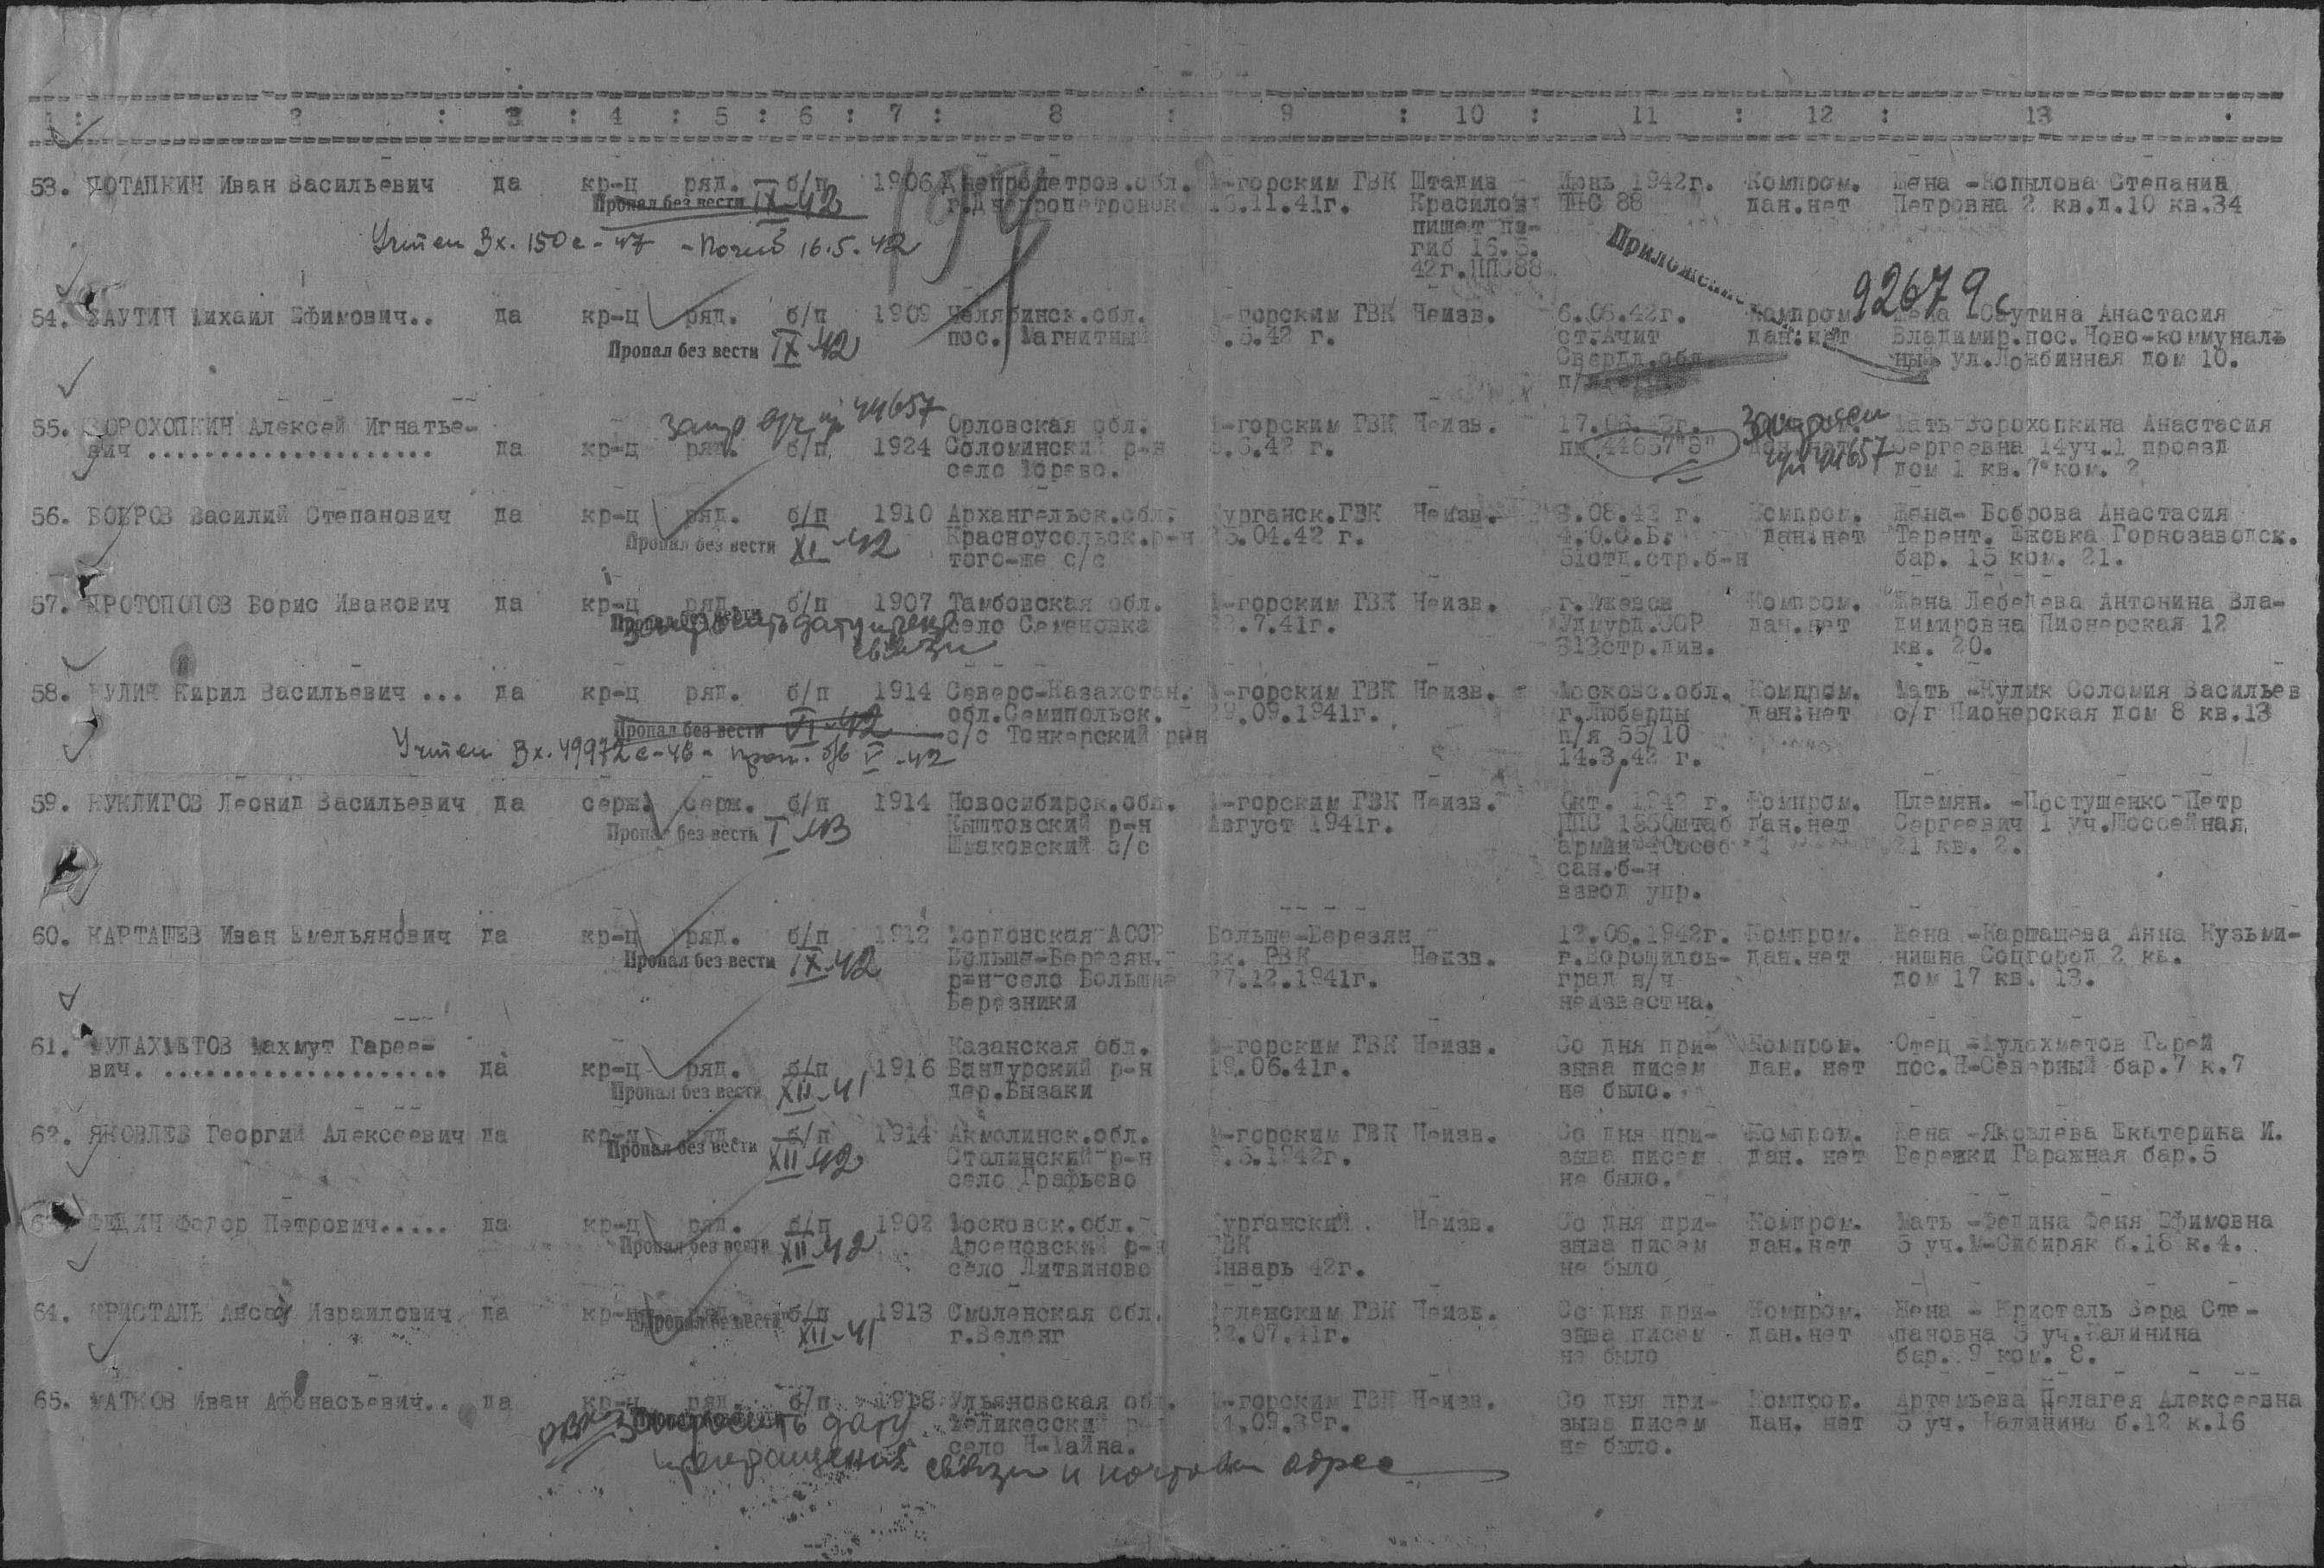 - 5 -
1 : 2 : 3 : 4 : 5 : 6 : 7 : 8 : 9 : 10 : 11 : 12 : 13
53. ПОТАПКИН Иван Васильевич да кр-ц ряд. б/п 1906 Днепропетров.обл. М-горским ГВК Штадив Июнь 1942г. Компром. Жена -Копылова Степанида
Пропал без вести IX-42 г.Днепропетровск 16.11.41г. Красилов ППС 88 дан.нет Петровна 2 кв.д.10 кв.34
пишет по-
Учтен Вх. 150с-47 - Погиб 16.5.42 гиб 16.5.
42г.ППС88
Приложение
92679с
54. САУТИН Михаил Ефимович.. да кр-ц ряд. б/п 1909 Челябинск.обл. М-горским ГВК Неизв. 6.06.42г. Компром. Жена Саутина Анастасия
Пропал без вести IX-42 пос. Магнитный .5.42 г. ст.Ачит дан.нет Владимир.пос.Ново-коммуналь
Свердл.обл. ный ул.Ломбинная дом 10.
п/я
55. ВОРОХОПКИН Алексей Игнатье- Орловская обл. М-горским ГВК Неизв. 17.06. Мать Ворохопкина Анастасия
вич .................... да кр-ц ряд. б/п 1924 Соломинский р-н .6.42 г. пп 44657"Б" дан.нет Сергеевна 14уч.1 проезд
село Юрево. дом 1 кв.7 ком. 2
запр в/ч пп 44657
Запрошен
пп 44657
56. БОБРОВ Василий Степанович да кр-ц ряд. б/п 1910 Архангельск.обл. Курганск.ГВК Неизв. 8.08.42 г. Компром. Жена- Боброва Анастасия
Пропал без вести XI-42 Красноусольск.р-н 25.04.42 г. 4.О.С.Б. дан.нет Терент. Ежовка Горнозаводск.
того-же с/с 51отд.стр.б-н бар. 15 ком. 21.
57. ПРОТОПОПОВ Борис Иванович да кр-ц ряд. б/п 1907 Тамбовская обл. М-горским ГВК Неизв. г.Ижевск Компром. Жена Лебедева Антонина Вла-
Пропал без вести село Семеновка .7.41г. Удмурд.ССР дан.нет димировна Пионерская 12
313стр.див. кв. 20.
запросить дату прекр
связи
58. КУЛИК Кирил Васильевич ... да кр-ц ряд. б/п 1914 Северо-Казахстан. М-горским ГВК Неизв. Московс.обл. Компром. Мать -Кулик Соломия Васильев
Пропал без вести VI-42 обл.Семипольск. 29.09.1941г. г.Люберцы дан.нет с/г Пионерская дом 8 кв.13
с/с Тонкерский р-н п/я 55/10
Учтен Вх. 49972с-46 - проп. б/в V-42 14.3.42 г.
59. КУКЛИГОВ Леонид Васильевич да серж. серж. б/п 1914 Новосибирск.обл. М-горским ГВК Неизв. Окт. 1942 г. Компром. Племян. -Постушенко Петр
Пропал без вести I-43 Кыштовский р-н Август 1941г. ППС 1550штаб дан.нет Сергеевич 1 уч.Шоссейная
Шмаковский с/с армии 40особ 21 кв. 2.
сан.б-н
взвод упр.
60. КАРТАШЕВ Иван Емельянович да кр-ц ряд. б/п 1912 Мордовская АССР Больше-Березян 12.06.1942г. Компром. Жена -Карташева Анна Кузьми-
Пропал без вести IX-42 Больше-Березян. ск. РВК Неизв. г.Ворошилов- дан.нет нишна Соцгород 2 кв.
р-н село Большие 27.12.1941г. град в/ч дом 17 кв. 13.
Березники неизвестна.
61. МУЛАХМЕТОВ Махмут Гарее- Казанская обл. М-горским ГВК Неизв. Со дня при- Компром. Отец -Мулахметов Гарей
вич. .................... да кр-ц ряд. б/п 1916 Бандурский р-н 19.06.41г. зыва писем дан. нет пос.Н-Северный бар.7 к.7
Пропал без вести XII-41 дер.Бызаки не было.
62. ЯКОВЛЕВ Георгий Алексеевич да кр-ц ряд. б/п 1914 Акмолинск.обл. М-горским ГВК Неизв. Со дня при- Компром. Жена -Яковлева Екатерина И.
Пропал без вести XII-42 Сталинский р-н .5.1942г. зыва писем дан. нет Бережки Гаражная бар.5
село Графьево не было.
63. ФЕДИН Федор Петрович..... да кр-ц ряд. б/п 1902 Московск.обл. Курганский Неизв. Со дня при- Компром. Мать -Федина Феня Ефимовна
Пропал без вести XII-42 Арсеновский р-н ГВК зыва писем дан.нет 5 уч.М-Сибиряк б.18 к.4.
село Литвиново Январь 42г. не было
64. КРИСТАЛЬ Аисай Израилович да кр-ц б/п 1913 Смоленская обл. Веленским ГВК Неизв. Со дня при- Компром. Жена - Кристаль Вера Сте-
Пропал без вести XII-41 г.Веленг 22.07.41г. зыва писем дан.нет пановна 5 уч.Калинина
не было бар. 9 ком. 8.
65. МАТКОВ Иван Афонасьевич.. да кр-ц ряд. б/п 1918 Ульяновская обл. М-горским ГВК Неизв. Со дня при- Компром. Артемьева Пелагея Алексеевна
Запросить дату Меликесский р-н .09.39г. зыва писем дан. нет 5 уч. Калинина б.12 к.16
село Н-Майна. не было.
прекращения связи и почтовый адрес